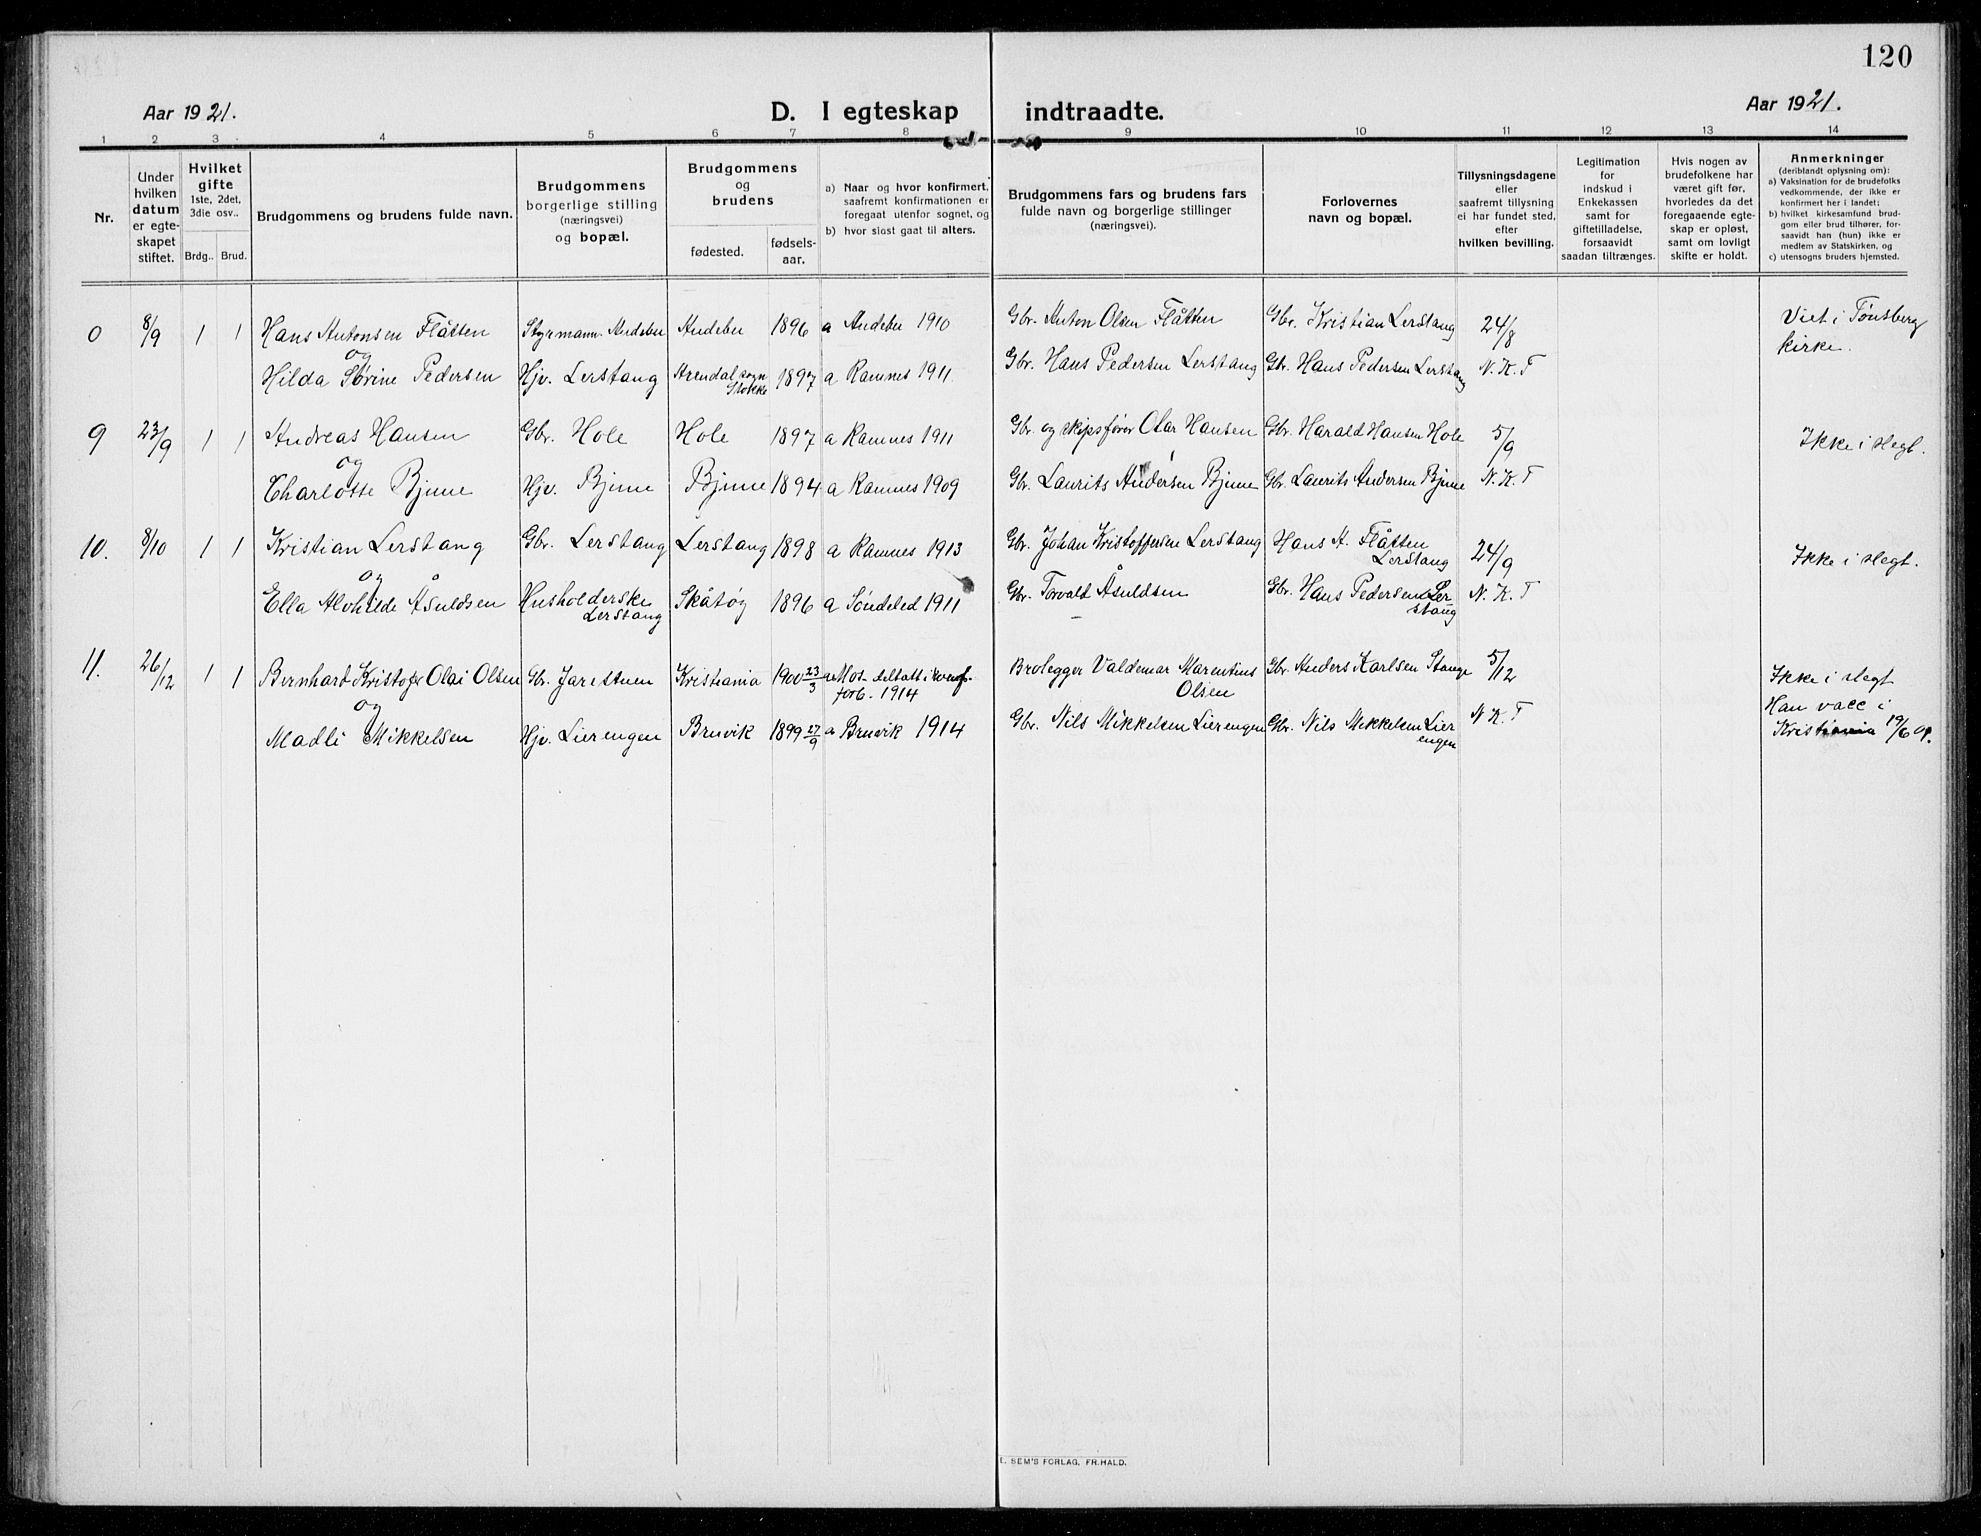 120
Aar 1921.
D. I egteskap indtraadte.
Aar 1921.
1 2 3 4 5 6 7 8 9 10 11 12 13 14
Nr.
Under
hvilken
datum
er egte-
skapet
stiftet.
Hvilket
gifte
1ste, 2det,
3die osv..
Brdg.. Brud.
Brudgommens og brudens fulde navn.
Brudgommens
borgerlige stilling
(næringsvei)
og bopæl.
Brudgommens
og
brudens
fødested.
fødsels-
aar.
a) Naar og hvor konfirmert,
saafremt konfirmationen er
foregaat utenfor sognet, og
b) hvor sidst gaat til alters.
Brudgommens fars og brudens fars
fulde navn og borgerlige stillinger
(næringsvei).
Forlovernes
navn og bopæl.
Tillysningsdagene
eller
saafremt tillysning
ei har fundet sted,
efter
hvilken bevilling.
Legitimation
for
indskud i
Enkekassen
samt for
giftetilladelse,
forsaavidt
saadan tiltrænges.
Hvis nogen av
brudefolkene har
været gift før,
hvorledes da det
foregaaende egte-
skap er opløst,
samt om lovligt
skifte er holdt.
Anmerkninger
(deriblandt oplysning om):
a) Vaksination for de brudefolks
vedkommende, der ikke er
konfirmert her i landet;
b) hvilket kirkesamfund brud-
gom eller brud tilhører, for-
saavidt han (hun) ikke er
medlem av Statskirken, og
c) utensogns bruders hjemsted.
0 8/9 1 1 Hans Antonsen Flåtten Styrmann. Andebu Andebu 1896 a Andebu 1910 Gbr. Anton Olsen Flåtten Gbr. Kristian Lerstang 24/8 Viet i Tønsberg
kirke.
og
Hilda Sørine Pedersen Hjv. Lerstang Arendal sogn
Stokke 1897 a Ramnes 1911 Gbr. Hans Pedersen Lerstang Gbr. Hans Pedersen Lerstang N. K. T
9 23/9 1 1 Andreas Hansen Gbr. Hole Hole 1897 a Ramnes 1911 Gbr. og skipsfører Olar Hansen Gbr. Harald Hansen Hole 5/9 Ikke i slegt.
og
Charlotte Bjune Hjv. Bjune Bjune 1894 a Ramnes 1909 Gbr. Laurits Andersen Bjune Gbr. Laurits Andersen Bjune N. K. T
10. 8/10 1 1 Kristian Lerstang Gbr. Lerstang Lerstang 1898 a Ramnes 1913 Gbr. Johan Kristoffersen Lerstang Hans A. Flåtten
Lerstang 24/9 Ikke i slegt.
og
Ella Alvhilde Åsuldsen Husholderske
Lerstang Skåtøy 1896 a Søndeled 1911 Gbr. Torvald Åsuldsen Gbr. Hans Pedersen Ler
stang N. K. T
11. 26/12 1 1 Bernhard Kristofer Olai Olsen Gbr. Jarestuen Kristiania 1900 23/3 a Mos deltatt i konf.
forb. 1914 Brolegger Valdemar Marentius
Olsen Gbr. Anders Karlsen Stange 5/12 Ikke i slegt
Han vacc i
Kristiania 19/6 01.
og
Madli Mikkelsen Hjv. Lierengen Bruvik 1899 27/9 a Bruvik 1914 Gbr. Nils Mikkelsen Lierengen Gbr. Nils Mikkelsen Lier
engen N K T
E. SEM'S FORLAG, FR.HALD.